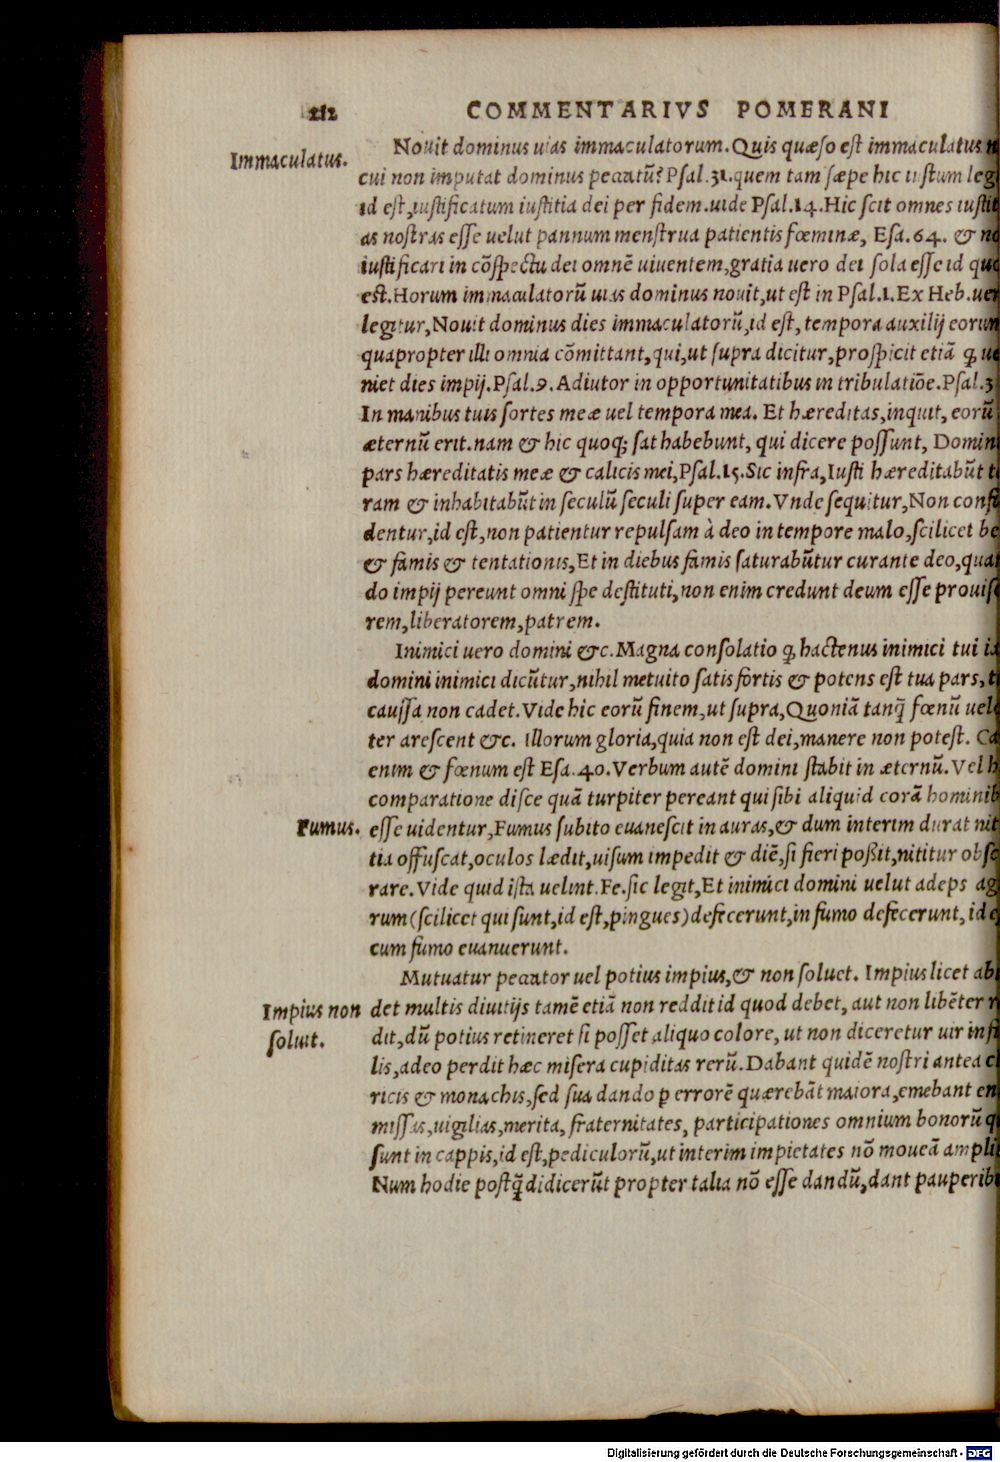 212 COMMENTARIVS POMERANI
Immaculatus.
Nouit dominus uias immaculatorum. Quis quæso est immaculatus n
cui non imputat dominus peccatū? Psal. 31. quem tam sæpe hic iustum leg
id est, iustificatum iustitia dei per fidem. uide Psal. 14. Hic scit omnes iustit
as nostras esse uelut pannum menstrua patientis fœminæ, Esa. 64. & no
iustificari in cōspectu dei omnē uiuentem, gratia uero dei sola esse id quo
est. Horum immaculatorū uias dominus nouit, ut est in Psal. 1. Ex Heb. uer
legitur, Nouit dominus dies immaculatorū, id est, tempora auxilij eorum
quapropter illi omnia cōmittant, qui, ut supra dicitur, prospicit etiā ꝙ ue
niet dies impij. Psal. 9. Adiutor in opportunitatibus in tribulatiōe. Psal. 3
In manibus tuis sortes meæ uel tempora mea. Et hæreditas, inquit, eorū
æternū erit. nam & hic quoq; sat habebunt, qui dicere possunt, Domin
pars hæreditatis meæ & calicis mei, Psal. 15. Sic infra, Iusti hæreditabūt t
ram & inhabitabūt in seculū seculi super eam. Vnde sequitur, Non confu
dentur, id est, non patientur repulsam à deo in tempore malo, scilicet be
& famis & tentationis, Et in diebus famis saturabūtur curante deo, quan
do impij pereunt omni spe destituti, non enim credunt deum esse prouiso
rem, liberatorem, patrem.
Inimici uero domini &c. Magna consolatio ꝙ hactenus inimici tui ia
domini inimici dicūtur, nihil metuito satis fortis & potens est tua pars, t
caussa non cadet. Vide hic eorū finem, ut supra, Quoniā tanq̄ fœnū uel
ter arescent &c. Illorum gloria, quia non est dei, manere non potest. Ca
enim & fœnum est Esa. 40. Verbum autē domini stabit in æternū. Vel h
comparatione disce quā turpiter pereant qui sibi aliquid corā hominib
Fumus.
esse uidentur, Fumus subito euanescit in auras, & dum interim durat nit
tia offuscat, oculos lædit, uisum impedit & diē, si fieri poßit, nititur obsc
rare. Vide quid ista uelint. Fe. sic legit, Et inimici domini uelut adeps ag
rum (scilicet qui sunt, id est, pingues) defecerunt, in fumo defecerunt, id e
cum fumo euanuerunt.
Mutuatur peccator uel potius impius, & non soluet. Impius licet ab
Impius non
soluit.
det multis diuitijs tamē etiā non reddit id quod debet, aut non libēter r
dit, dū potius retineret si posset aliquo colore, ut non diceretur uir infi
lis, adeo perdit hæc misera cupiditas rerū. Dabant quidē nostri antea cl
ricis & monachis, sed sua dando p errorē quærebāt maiora, emebant en
missas, uigilias, merita, fraternitates, participationes omnium bonorū q
sunt in cappis, id est, pediculorū, ut interim impietates nō moueā ampli
Num hodie postq̄ didicerūt propter talia nō esse dandū, dant pauperib
Digitalisierung gefördert durch die Deutsche Forschungsgemeinschaft - DFG